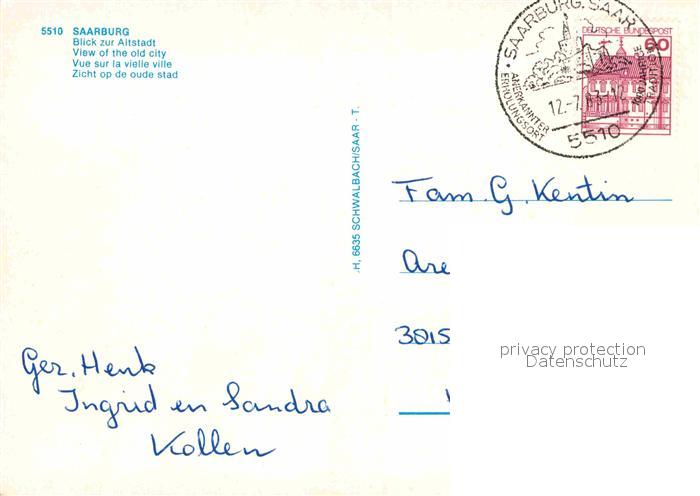 5510 SAARBURG
Blick zur Altstadt
View of the old city
Vue sur la vielle ville
Zicht op de oude stad
SAARBURG, SAAR
ANERKANNTER
ERHOLUNGSORT
1000 JAHRE
TRADITION
12.-7.83-12
5510
DEUTSCHE BUNDESPOST
60
H, 6635 SCHWALBACH/SAAR - T.
Fam. G. Kentin
Are
3815
privacy protection
Datenschutz
Ger, Henk
Ingrid en Sandra
Kollen